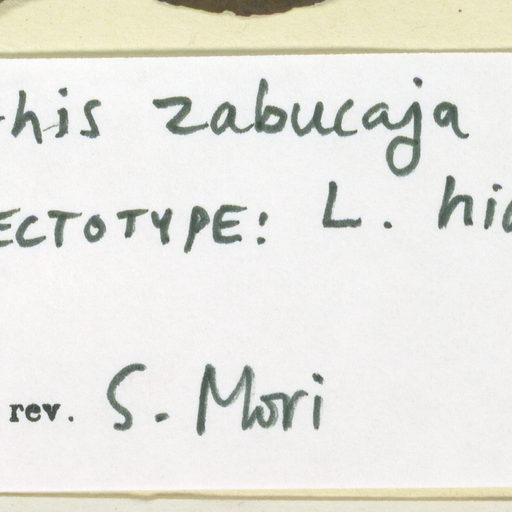 his zabucaja
ECTOTYPE: L.
rev. S. Mori